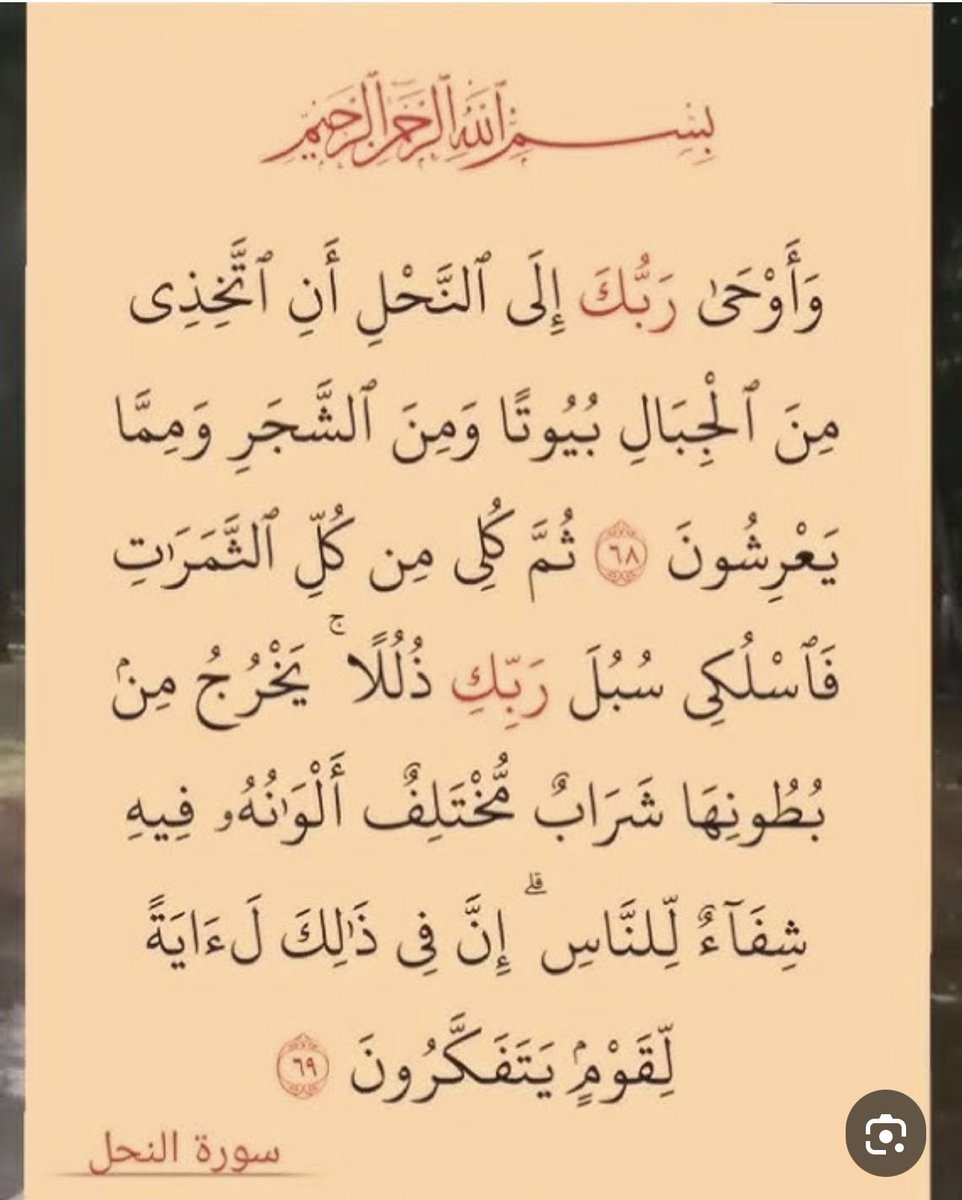 بِسْمِ ٱللَّهِ ٱلرَّحْمَٰنِ ٱلرَّحِيمِ
وَأَوْحَىٰ رَبُّكَ إِلَى ٱلنَّحْلِ أَنِ ٱتَّخِذِى
مِنَ ٱلْجِبَالِ بُيُوتًا وَمِنَ ٱلشَّجَرِ وَمِمَّا
يَعْرِشُونَ ٦٨ ثُمَّ كُلِى مِن كُلِّ ٱلثَّمَرَٰتِ
فَٱسْلُكِى سُبُلَ رَبِّكِ ذُلُلًا ۚ يَخْرُجُ مِنۢ
بُطُونِهَا شَرَابٌ مُّخْتَلِفٌ أَلْوَٰنُهُۥ فِيهِ
شِفَآءٌ لِّلنَّاسِ ۗ إِنَّ فِى ذَٰلِكَ لَءَايَةً
لِّقَوْمٍۢ يَتَفَكَّرُونَ ٦٩
سورة النحل